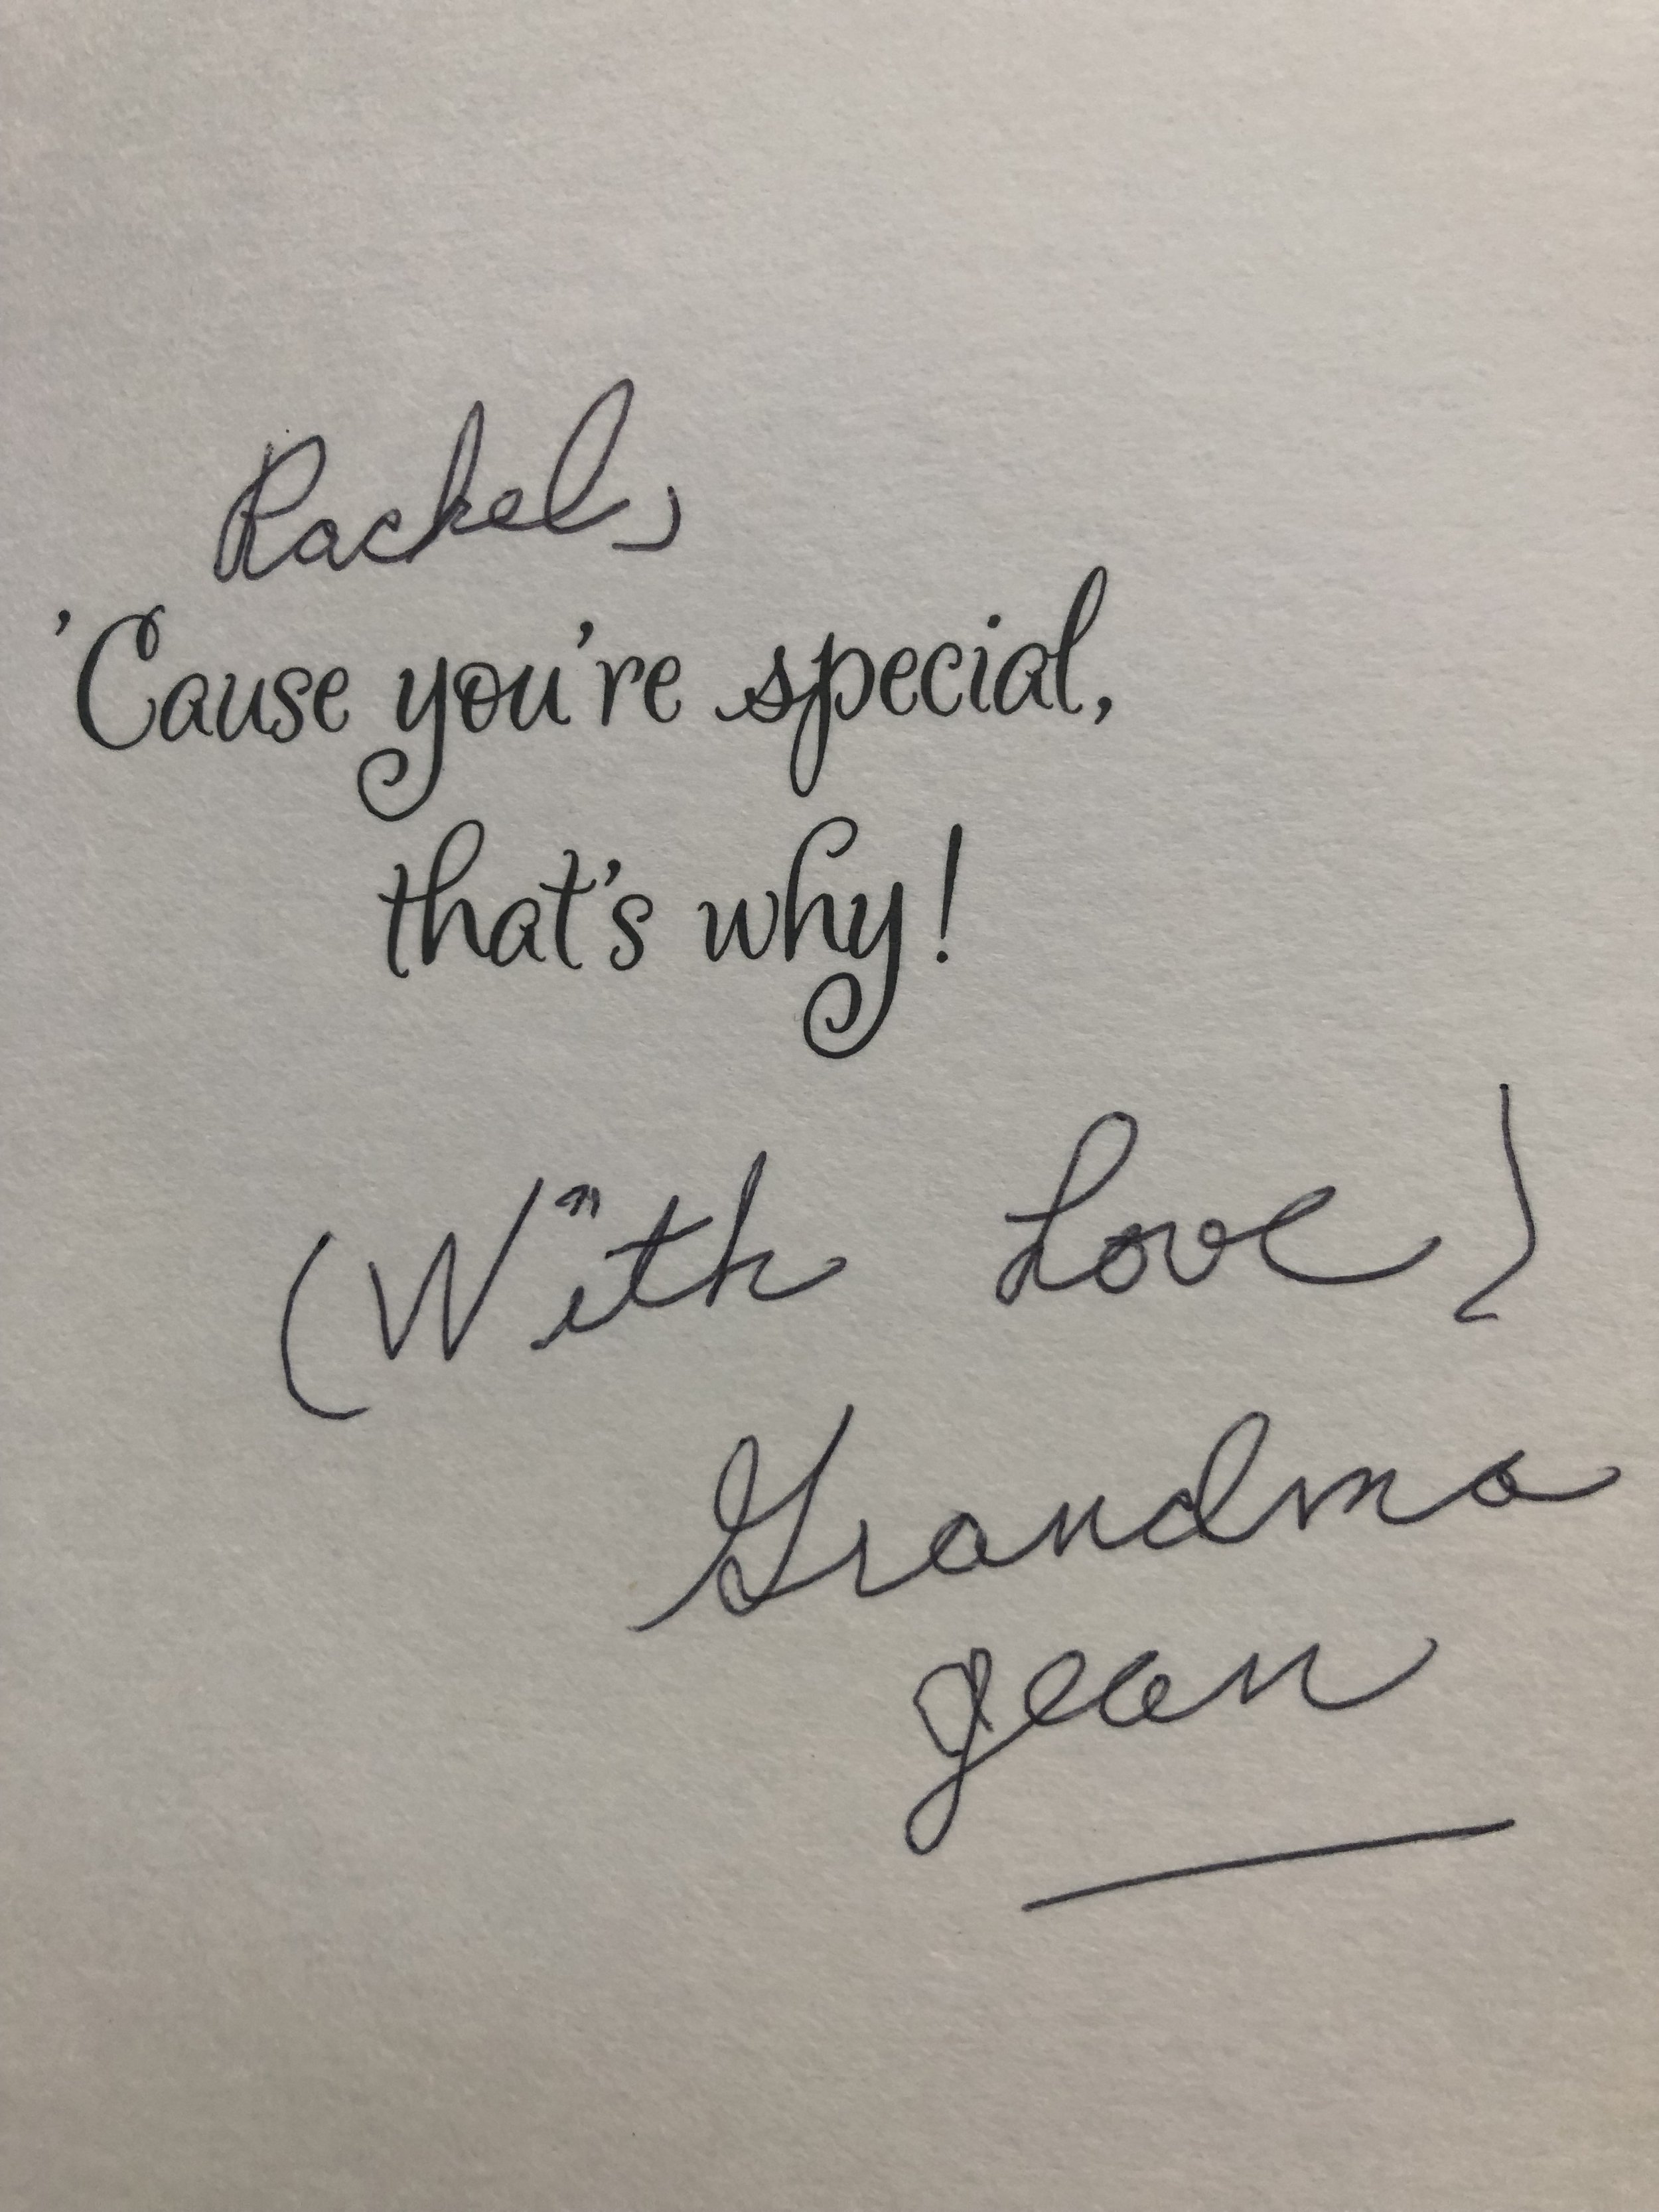 Rachel,
'Cause you're special,
that's why!
(With Love)
Grandma
Jean